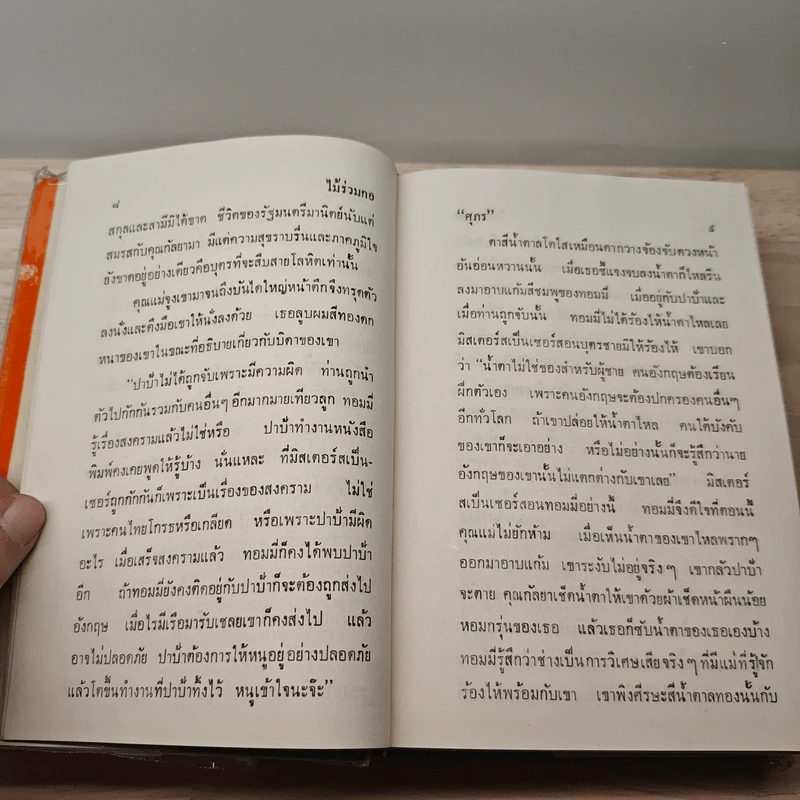 ๘
ไม้ร่วมกอ
สกุลและสามีมิได้ขาด ชีวิตของรัฐมนตรีมานิตย์นับแต่
สมรสกับคุณกัลยามา มีแต่ความสุขราบรื่นและภาคภูมิใจ
ยังขาดอยู่อย่างเดียวคือบุตรที่จะสืบสายโลหิตเท่านั้น
คุณแม่จูงเขามาจนถึงบันไดใหญ่หน้าตึกจึงทรุดตัว
ลงนั่งและดึงมือเขาให้นั่งลงด้วย เธอลูบผมสีทองดก
หนาของเขาในขณะที่อธิบายเกี่ยวกับบิดาของเขา
“ปาป้าไม่ได้ถูกจับเพราะมีความผิด ท่านถูกนำ
ตัวไปกักกันรวมกับคนอื่นๆ อีกมากมายเทียวลูก ทอมมี่
รู้เรื่องสงครามแล้วไม่ใช่หรือ ปาป้าทำงานหนังสือ
พิมพ์คงเคยพูดให้รู้บ้าง นั่นแหละ ที่มิสเตอร์สเป็น-
เซอร์ถูกกักกันก็เพราะเป็นเรื่องของสงคราม ไม่ใช่
เพราะคนไทยโกรธหรือเกลียด หรือเพราะปาป้ามีผิด
อะไร เมื่อเสร็จสงครามแล้ว ทอมมี่ก็คงได้พบปาป้า
อีก ถ้าทอมมี่ยังคงติดอยู่กับปาป้าก็จะต้องถูกส่งไป
อังกฤษ เมื่อไรมีเรือมารับเชลยเขาก็คงส่งไป แล้ว
อาจไม่ปลอดภัย ปาป้าต้องการให้หนูอยู่อย่างปลอดภัย
แล้วโตขึ้นทำงานที่ปาป้าทิ้งไว้ หนูเข้าใจนะจ๊ะ”
“ศุภร”
๙
ตาสีน้ำตาลโตใสเหมือนตากวางจ้องจับดวงหน้า
อันอ่อนหวานนั้น เมื่อเธอชี้แจงจบลงน้ำตาก็ไหลริน
ลงมาอาบแก้มสีชมพูของทอมมี่ เมื่ออยู่กับปาป้าและ
เมื่อท่านถูกจับนั้น ทอมมี่ไม่ได้ร้องไห้น้ำตาไหลเลย
มิสเตอร์สเป็นเซอร์สอนบุตรชายมิให้ร้องไห้ เขาบอก
ว่า “น้ำตาไม่ใช่ของสำหรับผู้ชาย คนอังกฤษต้องเรียน
ฝึกตัวเอง เพราะคนอังกฤษจะต้องปกครองคนอื่นๆ
อีกทั่วโลก ถ้าเขาปล่อยให้น้ำตาไหล คนใต้บังคับ
ของเขาก็จะเอาอย่าง หรือไม่อย่างนั้นก็จะรู้สึกว่านาย
อังกฤษของเขานั้นไม่แตกต่างกับเขาเลย” มิสเตอร์
สเป็นเซอร์สอนทอมมี่อย่างนี้ ทอมมี่จึงดีใจที่ตอนนี้
คุณแม่ไม่ยักห้าม เมื่อเห็นน้ำตาของเขาไหลพรากๆ
ออกมาอาบแก้ม เขาระงับไม่อยู่จริงๆ เขากลัวปาป้า
จะตาย คุณกัลยาเช็ดน้ำตาให้เขาด้วยผ้าเช็ดหน้าผืนน้อย
หอมกรุ่นของเธอ แล้วเธอก็ซับน้ำตาของเธอเองบ้าง
ทอมมี่รู้สึกว่าช่างเป็นการวิเศษเสียจริงๆ ที่มีแม่ที่รู้จัก
ร้องไห้พร้อมกับเขา เขาพิงศีรษะสีน้ำตาลทองนั้นกับ